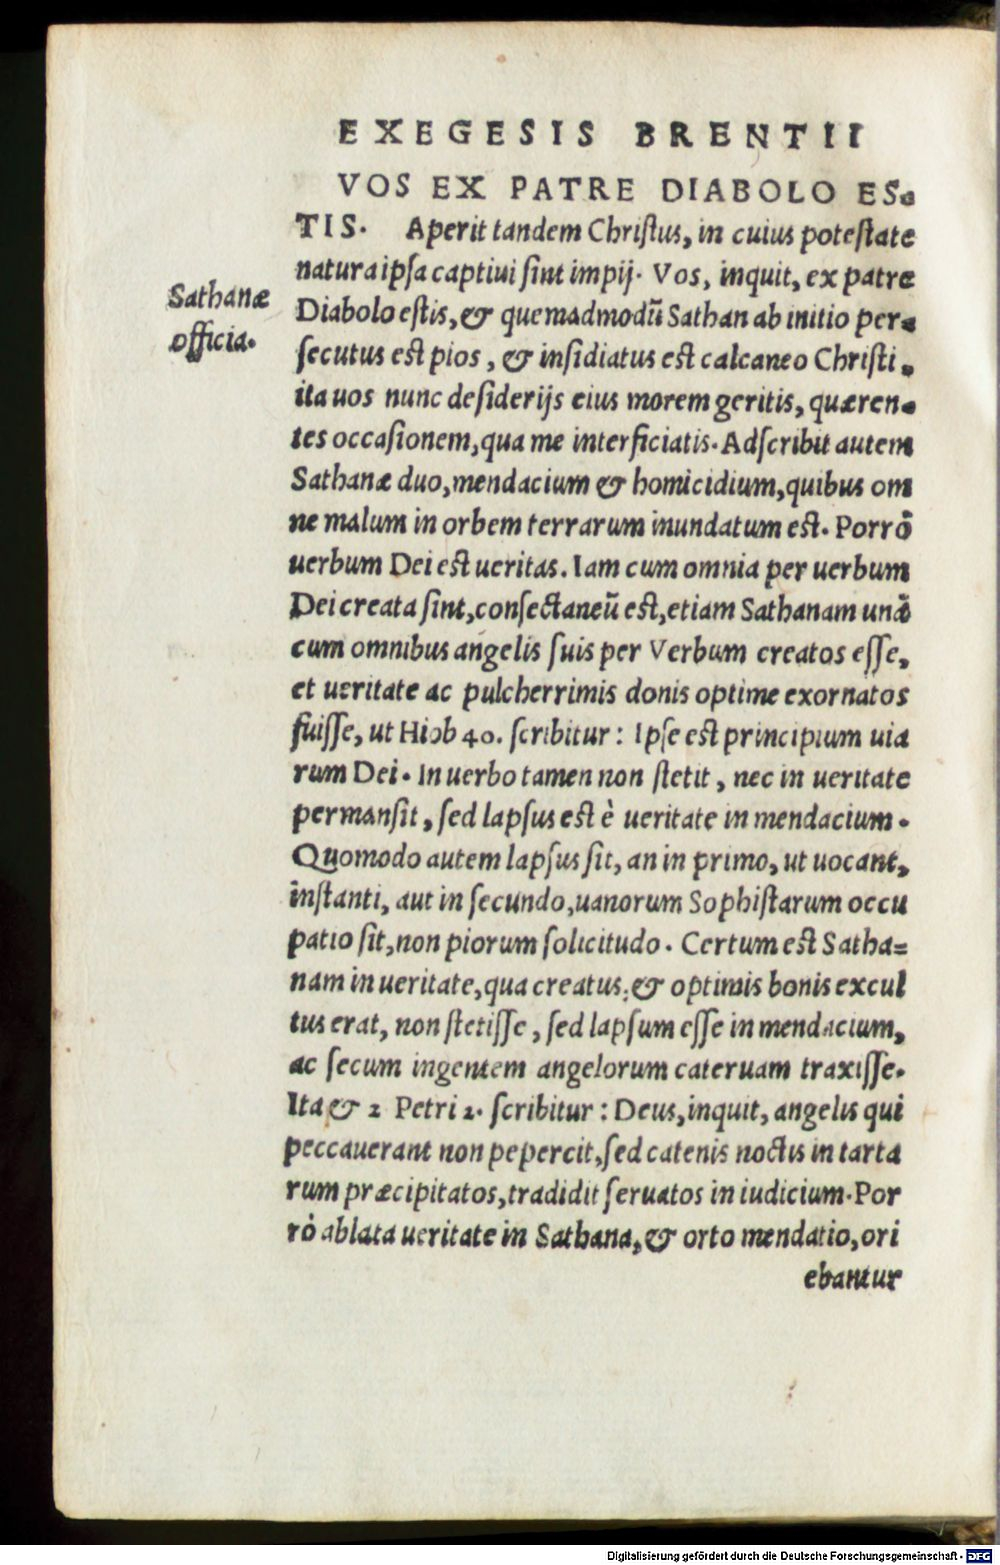 EXEGESIS BRENTII
VOS EX PATRE DIABOLO ES-
TIS. Aperit tandem Christus, in cuius potestate
natura ipsa captiui sint impij. Vos, inquit, ex patre
Sathanæ
officia.
Diabolo estis, & quemadmodū Sathan ab initio per-
secutus est pios, & insidiatus est calcaneo Christi,
ita uos nunc desiderijs eius morem geritis, quæren-
tes occasionem, qua me interficiatis. Adscribit autem
Sathanæ duo, mendacium & homicidium, quibus om
ne malum in orbem terrarum inundatum est. Porrò
uerbum Dei est ueritas. Iam cum omnia per uerbum
Dei creata sint, consectaneū est, etiam Sathanam unà
cum omnibus angelis suis per Verbum creatos esse,
et ueritate ac pulcherrimis donis optime exornatos
fuisse, ut Hiob 40. scribitur: Ipse est principium uia
rum Dei. In uerbo tamen non stetit, nec in ueritate
permansit, sed lapsus est è ueritate in mendacium.
Quomodo autem lapsus sit, an in primo, ut uocant,
instanti, aut in secundo, uanorum Sophistarum occu
patio sit, non piorum solicitudo. Certum est Satha=
nam in ueritate, qua creatus, & optimis bonis excul
tus erat, non stetisse, sed lapsum esse in mendacium,
ac secum ingentem angelorum cateruam traxisse.
Ita & 2 Petri 2. scribitur: Deus, inquit, angelis qui
peccauerant non pepercit, sed catenis noctis in tarta
rum præcipitatos, tradidit seruatos in iudicium. Por
rò ablata ueritate in Sathana, & orto mendatio, ori
ebantur
Digitalisierung gefördert durch die Deutsche Forschungsgemeinschaft - DFG